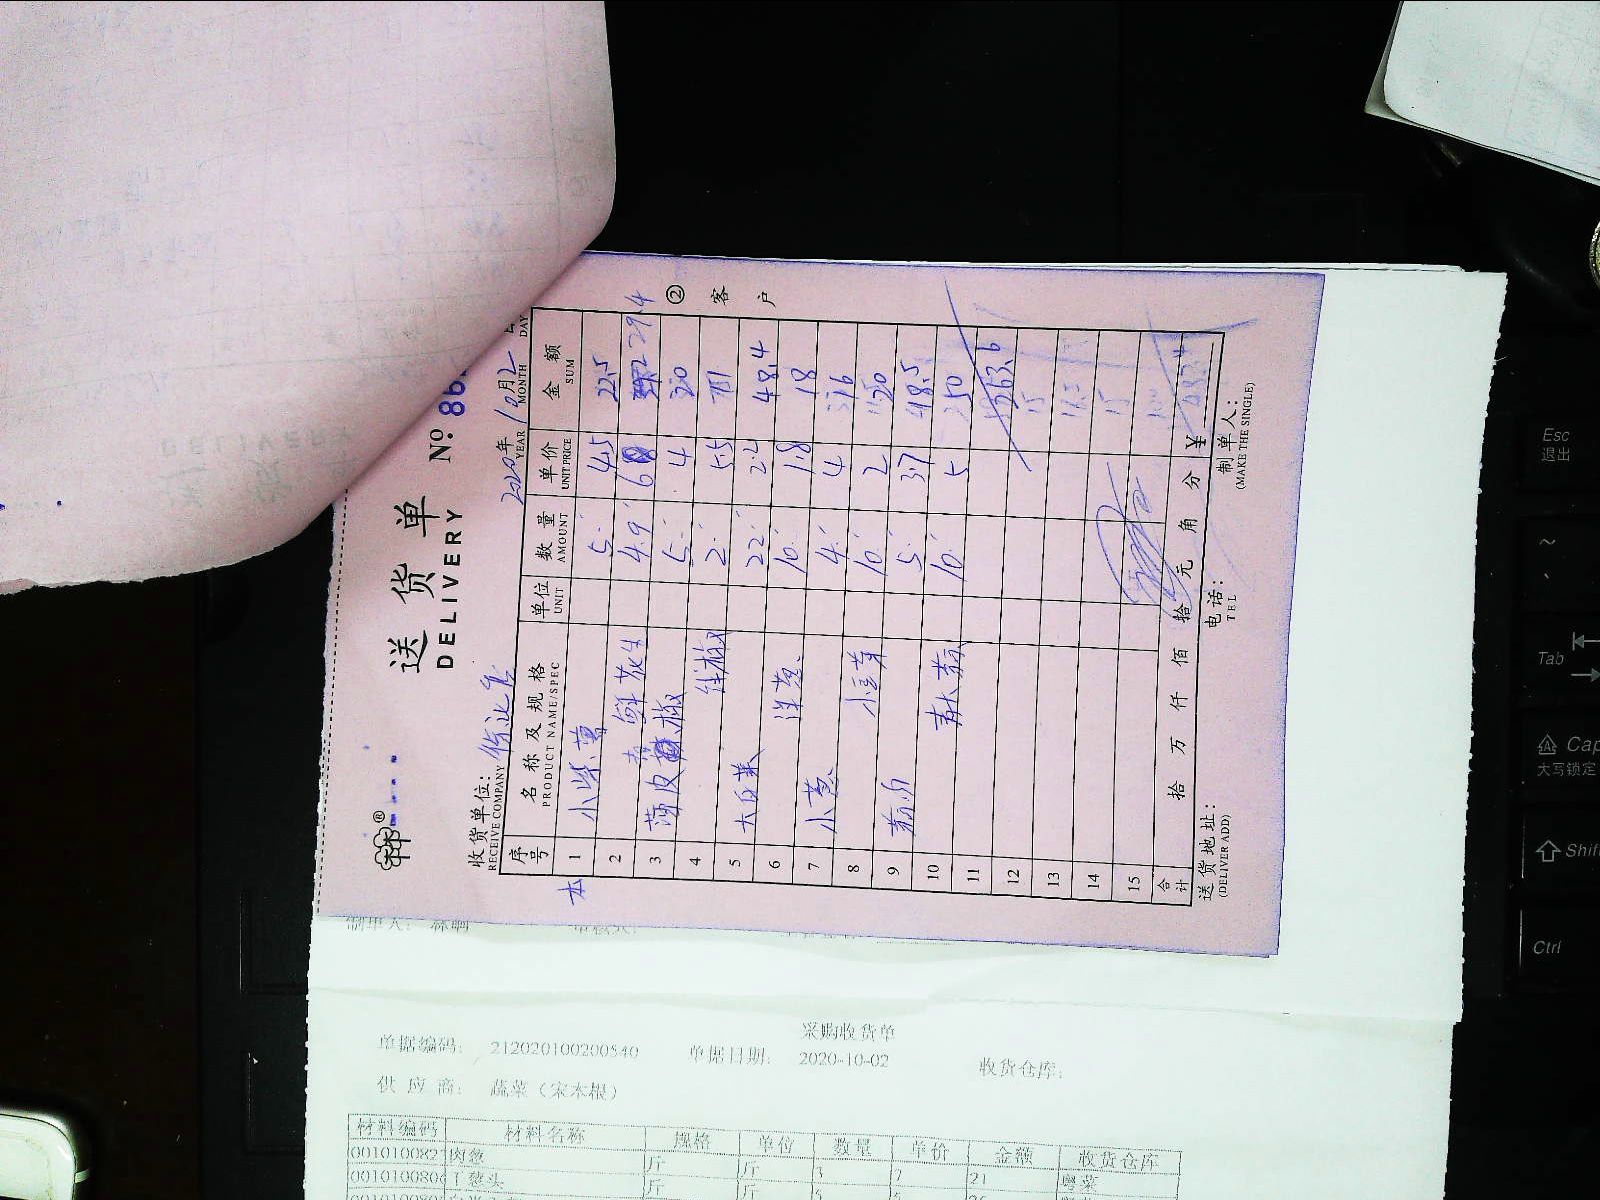 送货单
DELIVERY
№: 86
收货单位:
RECEIVE COMPANY
2020年 10月2
YEAR MONTH DAY
序号 名称及规格 单位 数量 单价 金额
PRODUCT NAME/SPEC UNIT AMOUNT UNIT PRICE SUM
本
1 小紫薯 5 4.5 22.5
2 鲜花生 4.9 6 29.4
3 薄皮椒 5 4 20
4 线椒 2 5.5 11
5 大白菜 22 2.2 48.4
6 洋葱 10 1.8 18
7 小葱 4 4 16
8 小豆芽 10 2 20
9 5 3.7 18.5
10 青大蒜 10 5 50
11
12
13
14
15
合计 拾 万 仟 佰 拾 元 角 分 ¥
送货地址: 电话: 制单人:
(DELIVER ADD) TEL (MAKE THE SINGLE)
② 客户
采购收货单
单据编码: 212020100200540 单据日期: 2020-10-02 收货仓库:
供应商: 蔬菜(宋本根)
材料编码 材料名称 规格 单位 数量 单价 金额 收货仓库
001010082 肉葱 斤 斤 3 7 21 粤菜
00101008 丁葱头 斤 斤
Esc
退出
~
Tab
Cap
大写锁定
Shift
Ctrl